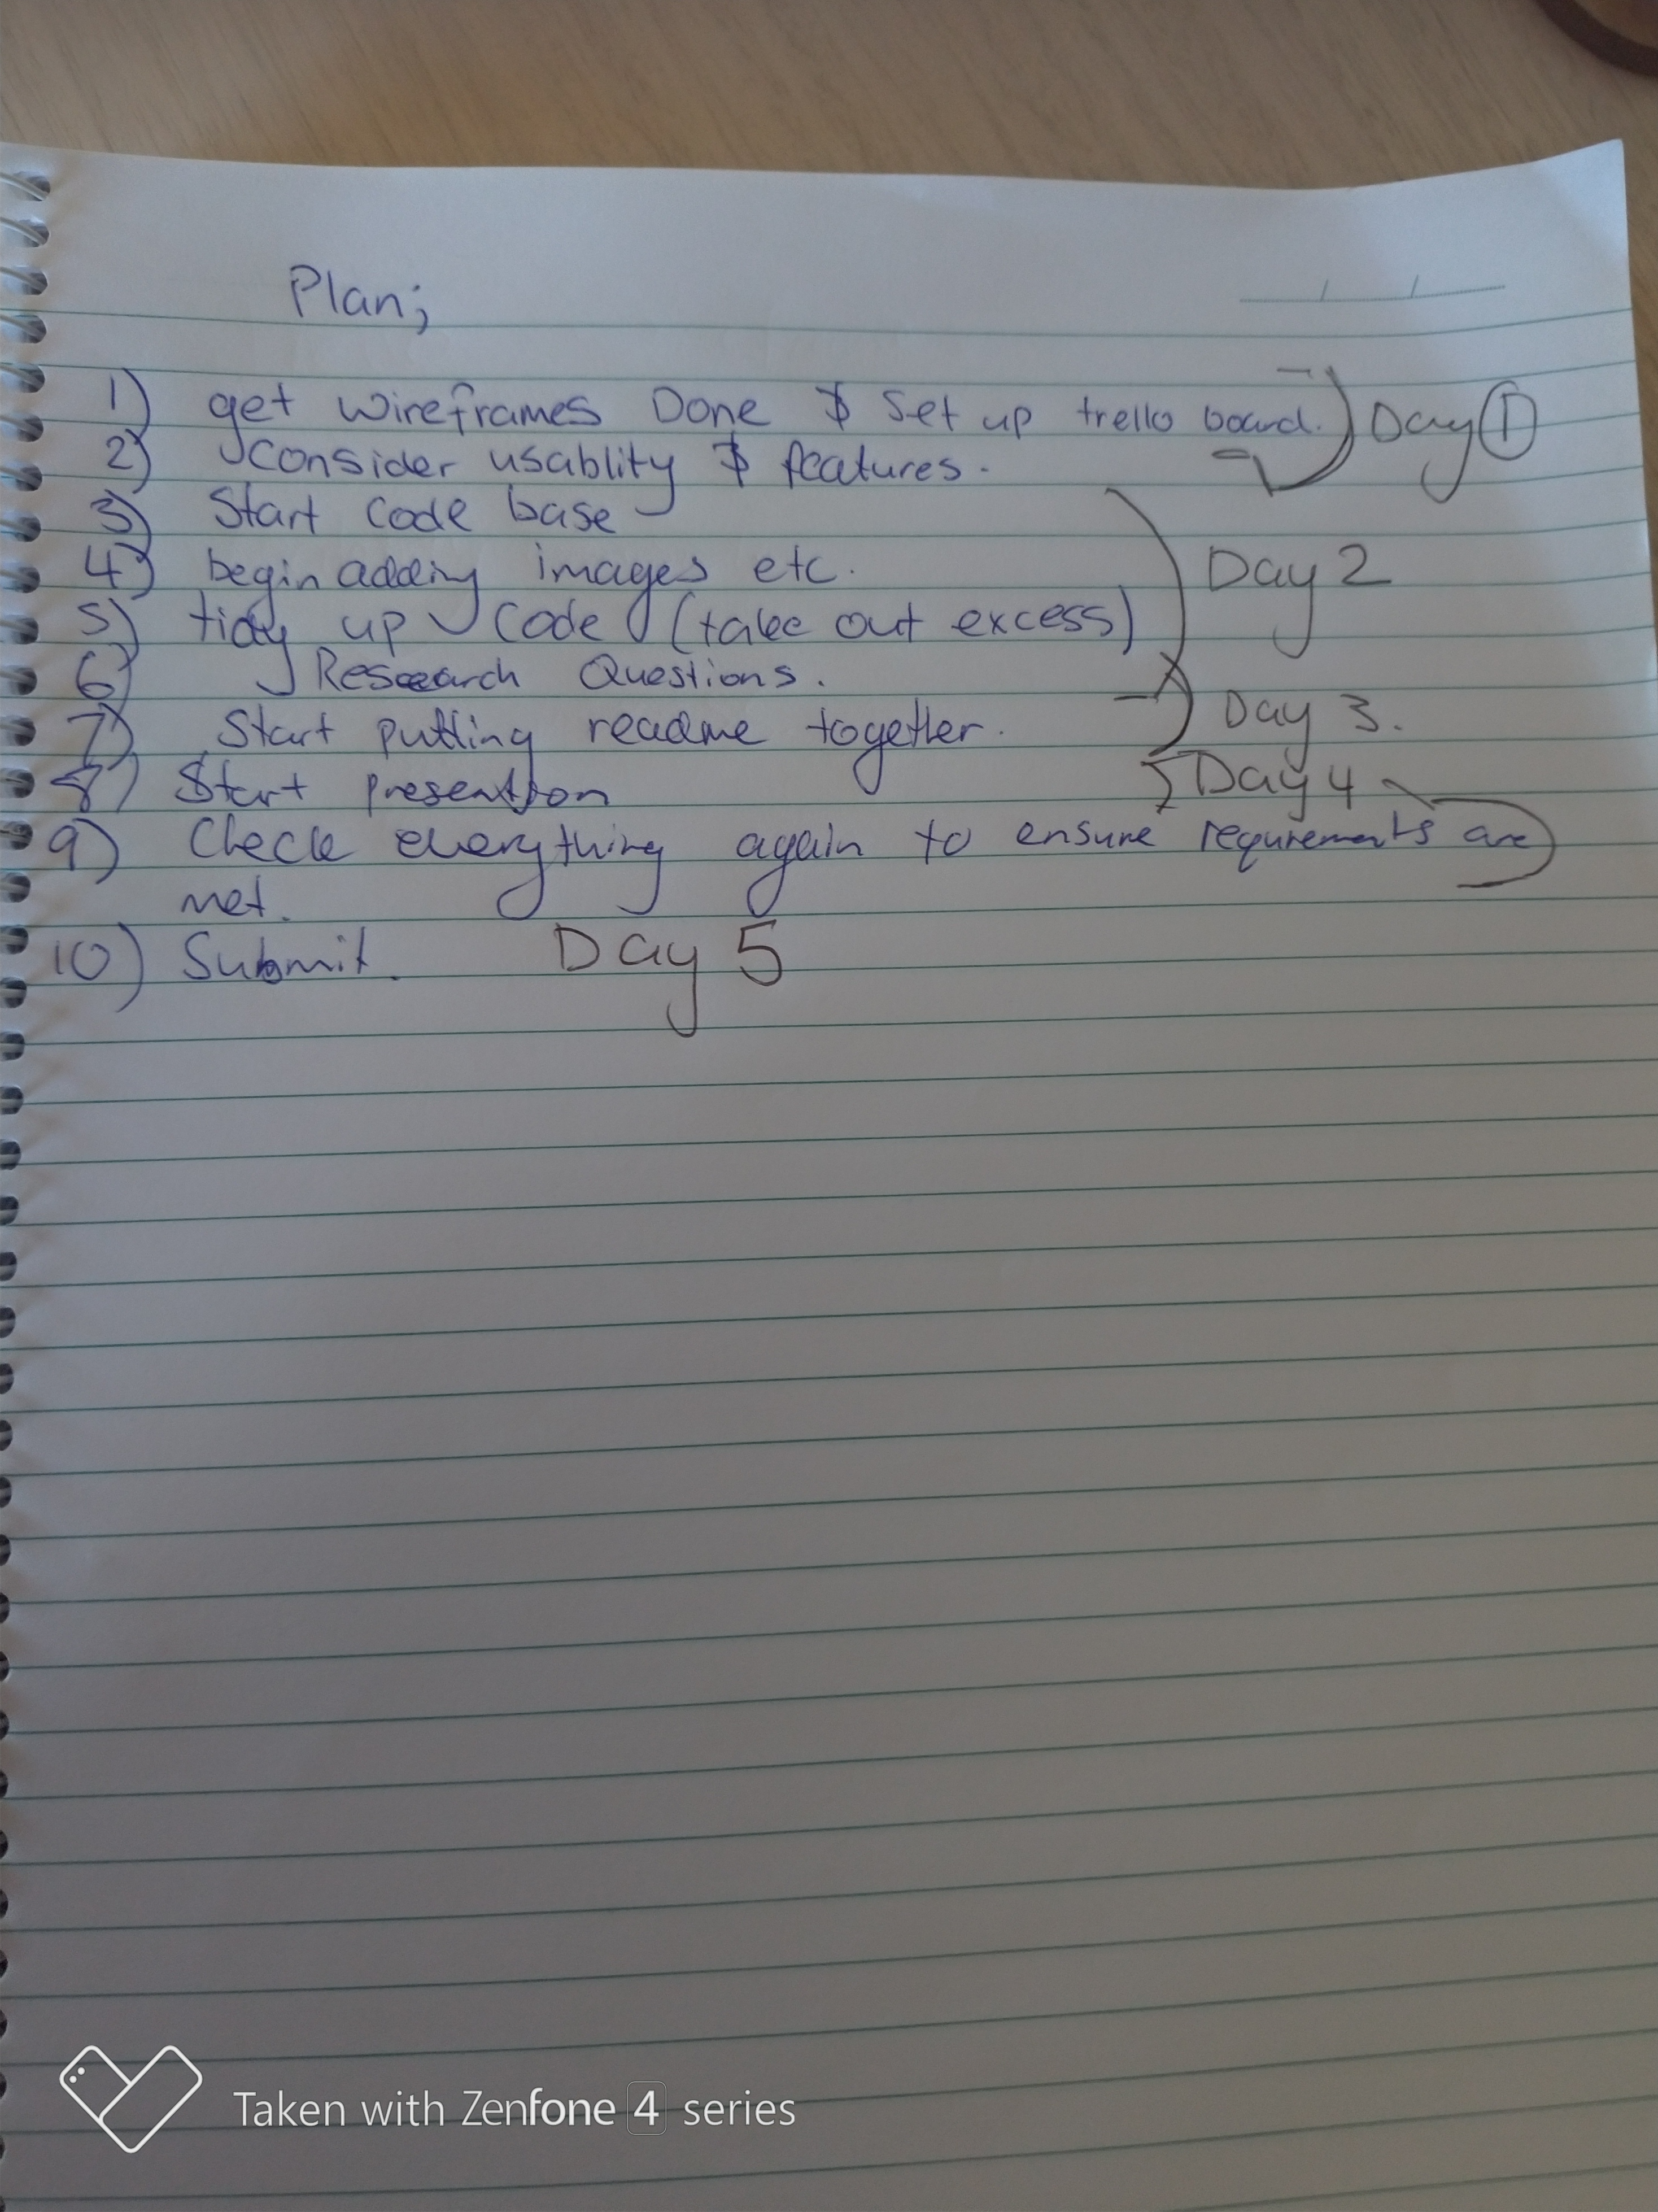 Plan;
1) get wireframes Done & Set up trello board. Day 1
2) Consider usablity & features.
3) Start code base
4) begin adding images etc. Day 2
5) tidy up code (take out excess)
6) Research Questions.
7) Start putting readme together. Day 3.
8) Start presention Day 4
9) Check everything again to ensure requrements are
met.
10) Submit. Day 5
Taken with Zenfone 4 series